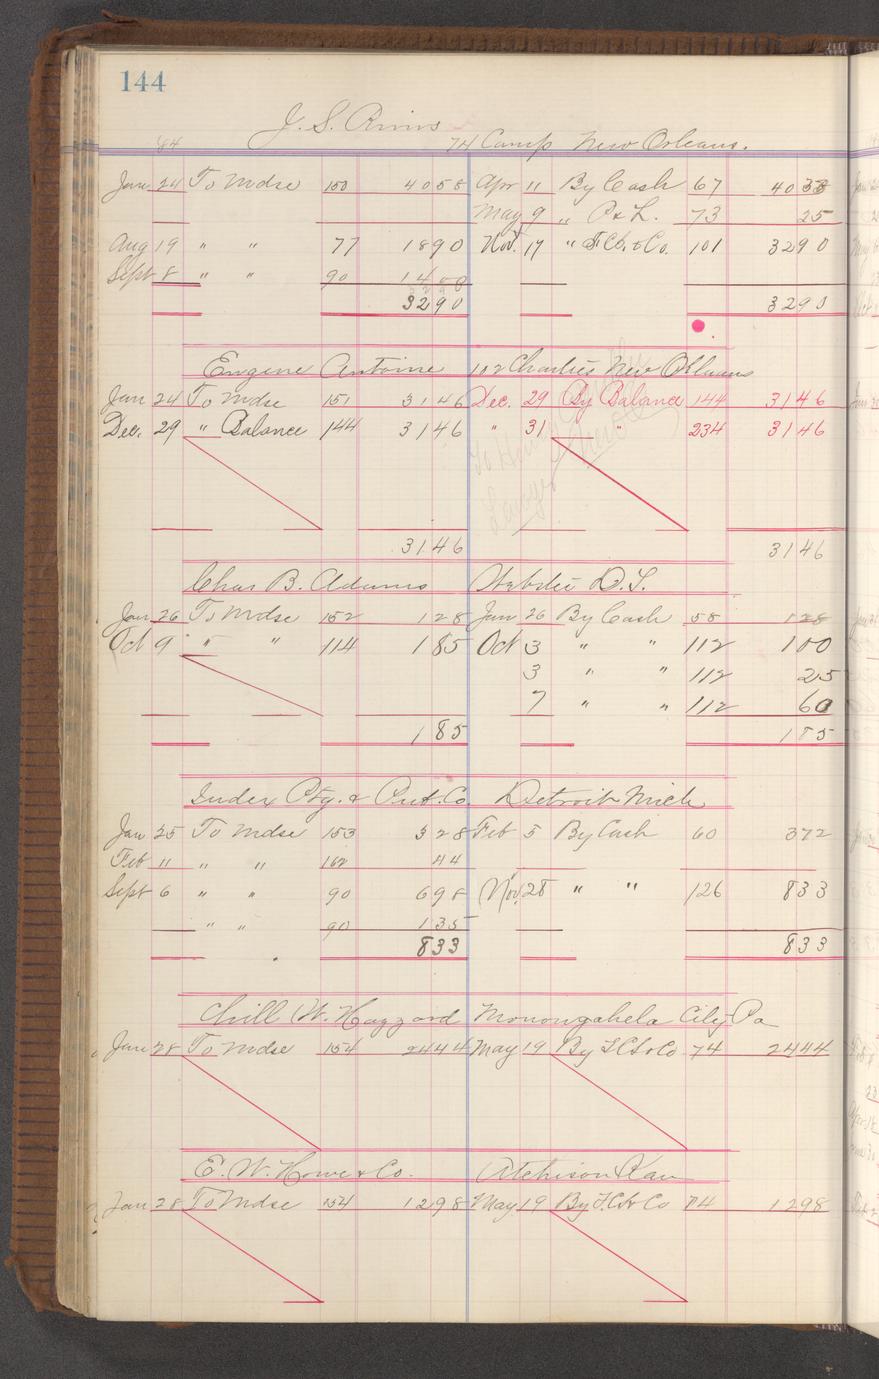 144
J. S. Rivers
84 74 Camp New Orleans.
Jan 24 To Mdse 150 4058 Apr 11 By Cash 67 4033
May 9 „ P & L. 73 25
Aug 19 " " 77 1890 Nov. 17 " F.Cl. & Co. 101 3290
Sept 8 " " 90 1400
3290 3290
Eugene Antoine 102 Charles New Orleans
Jan 24 To Mdse 151 3146 Dec. 29 By Balance 144 3146
Dec. 29 " Balance 144 3146 " 31 " 234 3146
Lawyer
3146 3146
Chas B. Adams Webster D.T.
Jan 26 To Mdse 152 128 Jan 26 By Cash 58 128
Oct 9 " " 114 185 Oct 3 " " 112 100
3 " " 112 25
7 " " 112 60
185 185
Index Ptg. & Pub. Co. Detroit Mich
Jan 25 To Mdse 153 328 Feb 5 By Cash 60 372
Feb 11 " " 162 44
Sept 6 " " 90 698 Nov. 28 " " 126 833
" " 90 135
833 833
Chill W. Hazzard Monongahela City Pa
Jan 28 To Mdse 154 2444 May 19 By F.Cl. & Co 74 2444
E. W. Howe & Co. Atchison Kan
Jan 28 To Mdse 154 1298 May 19 By F.Cl. & Co 74 1298